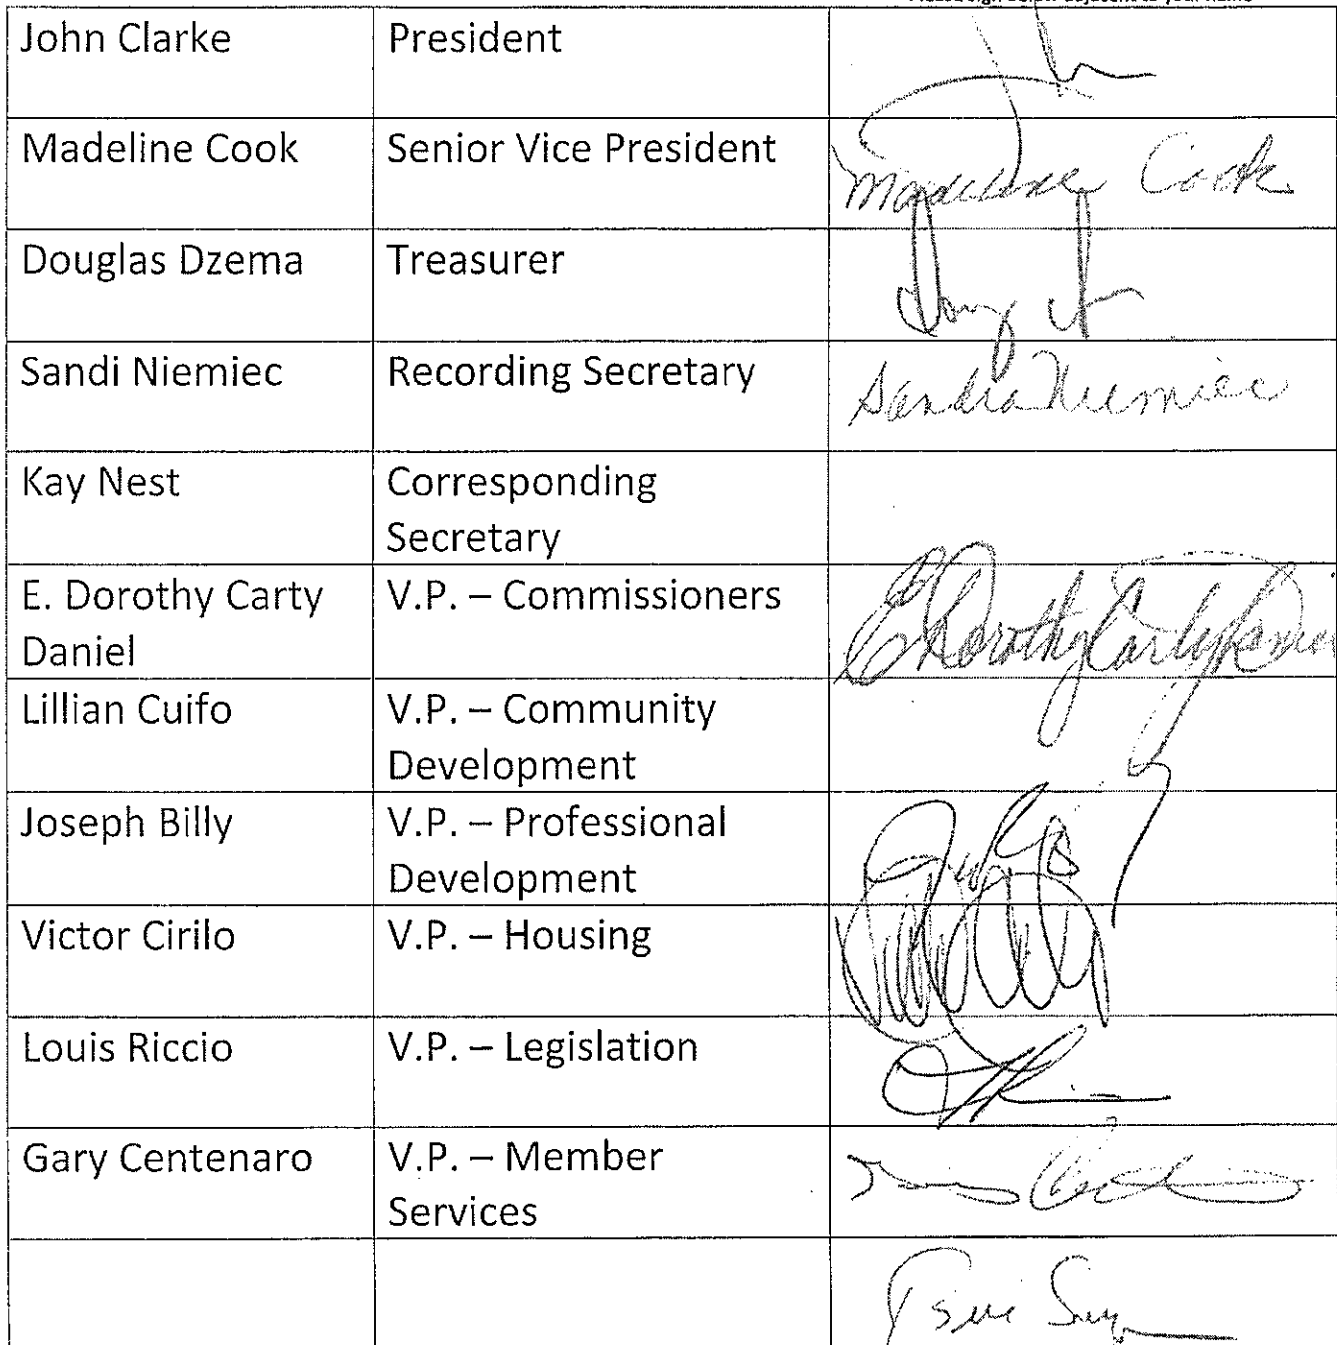 Please sign below adjacent to your name
John Clarke President
Madeline Cook Senior Vice President Madeline Cook
Douglas Dzema Treasurer Doug
Sandi Niemiec Recording Secretary Sandra Niemiec
Kay Nest Corresponding
Secretary
E. Dorothy Carty V.P. – Commissioners E Dorothy Carty Daniel
Daniel
Lillian Cuifo V.P. – Community
Development
Joseph Billy V.P. – Professional
Development
Victor Cirilo V.P. – Housing
Louis Riccio V.P. – Legislation
Gary Centenaro V.P. – Member
Services